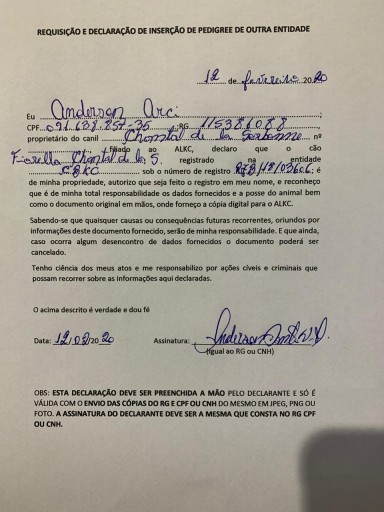 REQUISIÇÃO E DECLARAÇÃO DE INSERÇÃO DE PEDIGREE DE OUTRA ENTIDADE
12 de fevereiro 2020
Eu Anderson Arci
CPF 091.638.857-35, RG 115386088,
proprietário do canil Chantal de la Sorbonne nº
filiado ao ALKC, declaro que o cão
Fiorella Chantal de la S. registrado na entidade
CBKC sob o número de registro RJB/18/03606; é
de minha propriedade, autorizo que seja feito o registro em meu nome, e reconheço
que é de minha total responsabilidade os dados fornecidos e a posse do animal bem
como o documento original em mãos, onde forneço a cópia digital para o ALKC.
Sabendo-se que quaisquer causas ou consequências futuras recorrentes, oriundos por
informações deste documento fornecido, serão de minha responsabilidade. E que ainda,
caso ocorra algum desencontro de dados fornecidos o documento poderá ser
cancelado.
Tenho ciência dos meus atos e me responsabilizo por ações cíveis e criminais que
possam recorrer sobre as informações aqui declaradas.
O acima descrito é verdade e dou fé
Data: 12/02/2020 Assinatura: Anderson
(Igual ao RG ou CNH)
OBS: ESTA DECLARAÇÃO DEVE SER PREENCHIDA A MÃO PELO DECLARANTE E SÓ É
VÁLIDA COM O ENVIO DAS CÓPIAS DO RG E CPF OU CNH DO MESMO EM JPEG, PNG OU
FOTO. A ASSINATURA DO DECLARANTE DEVE SER A MESMA QUE CONSTA NO RG CPF
OU CNH.